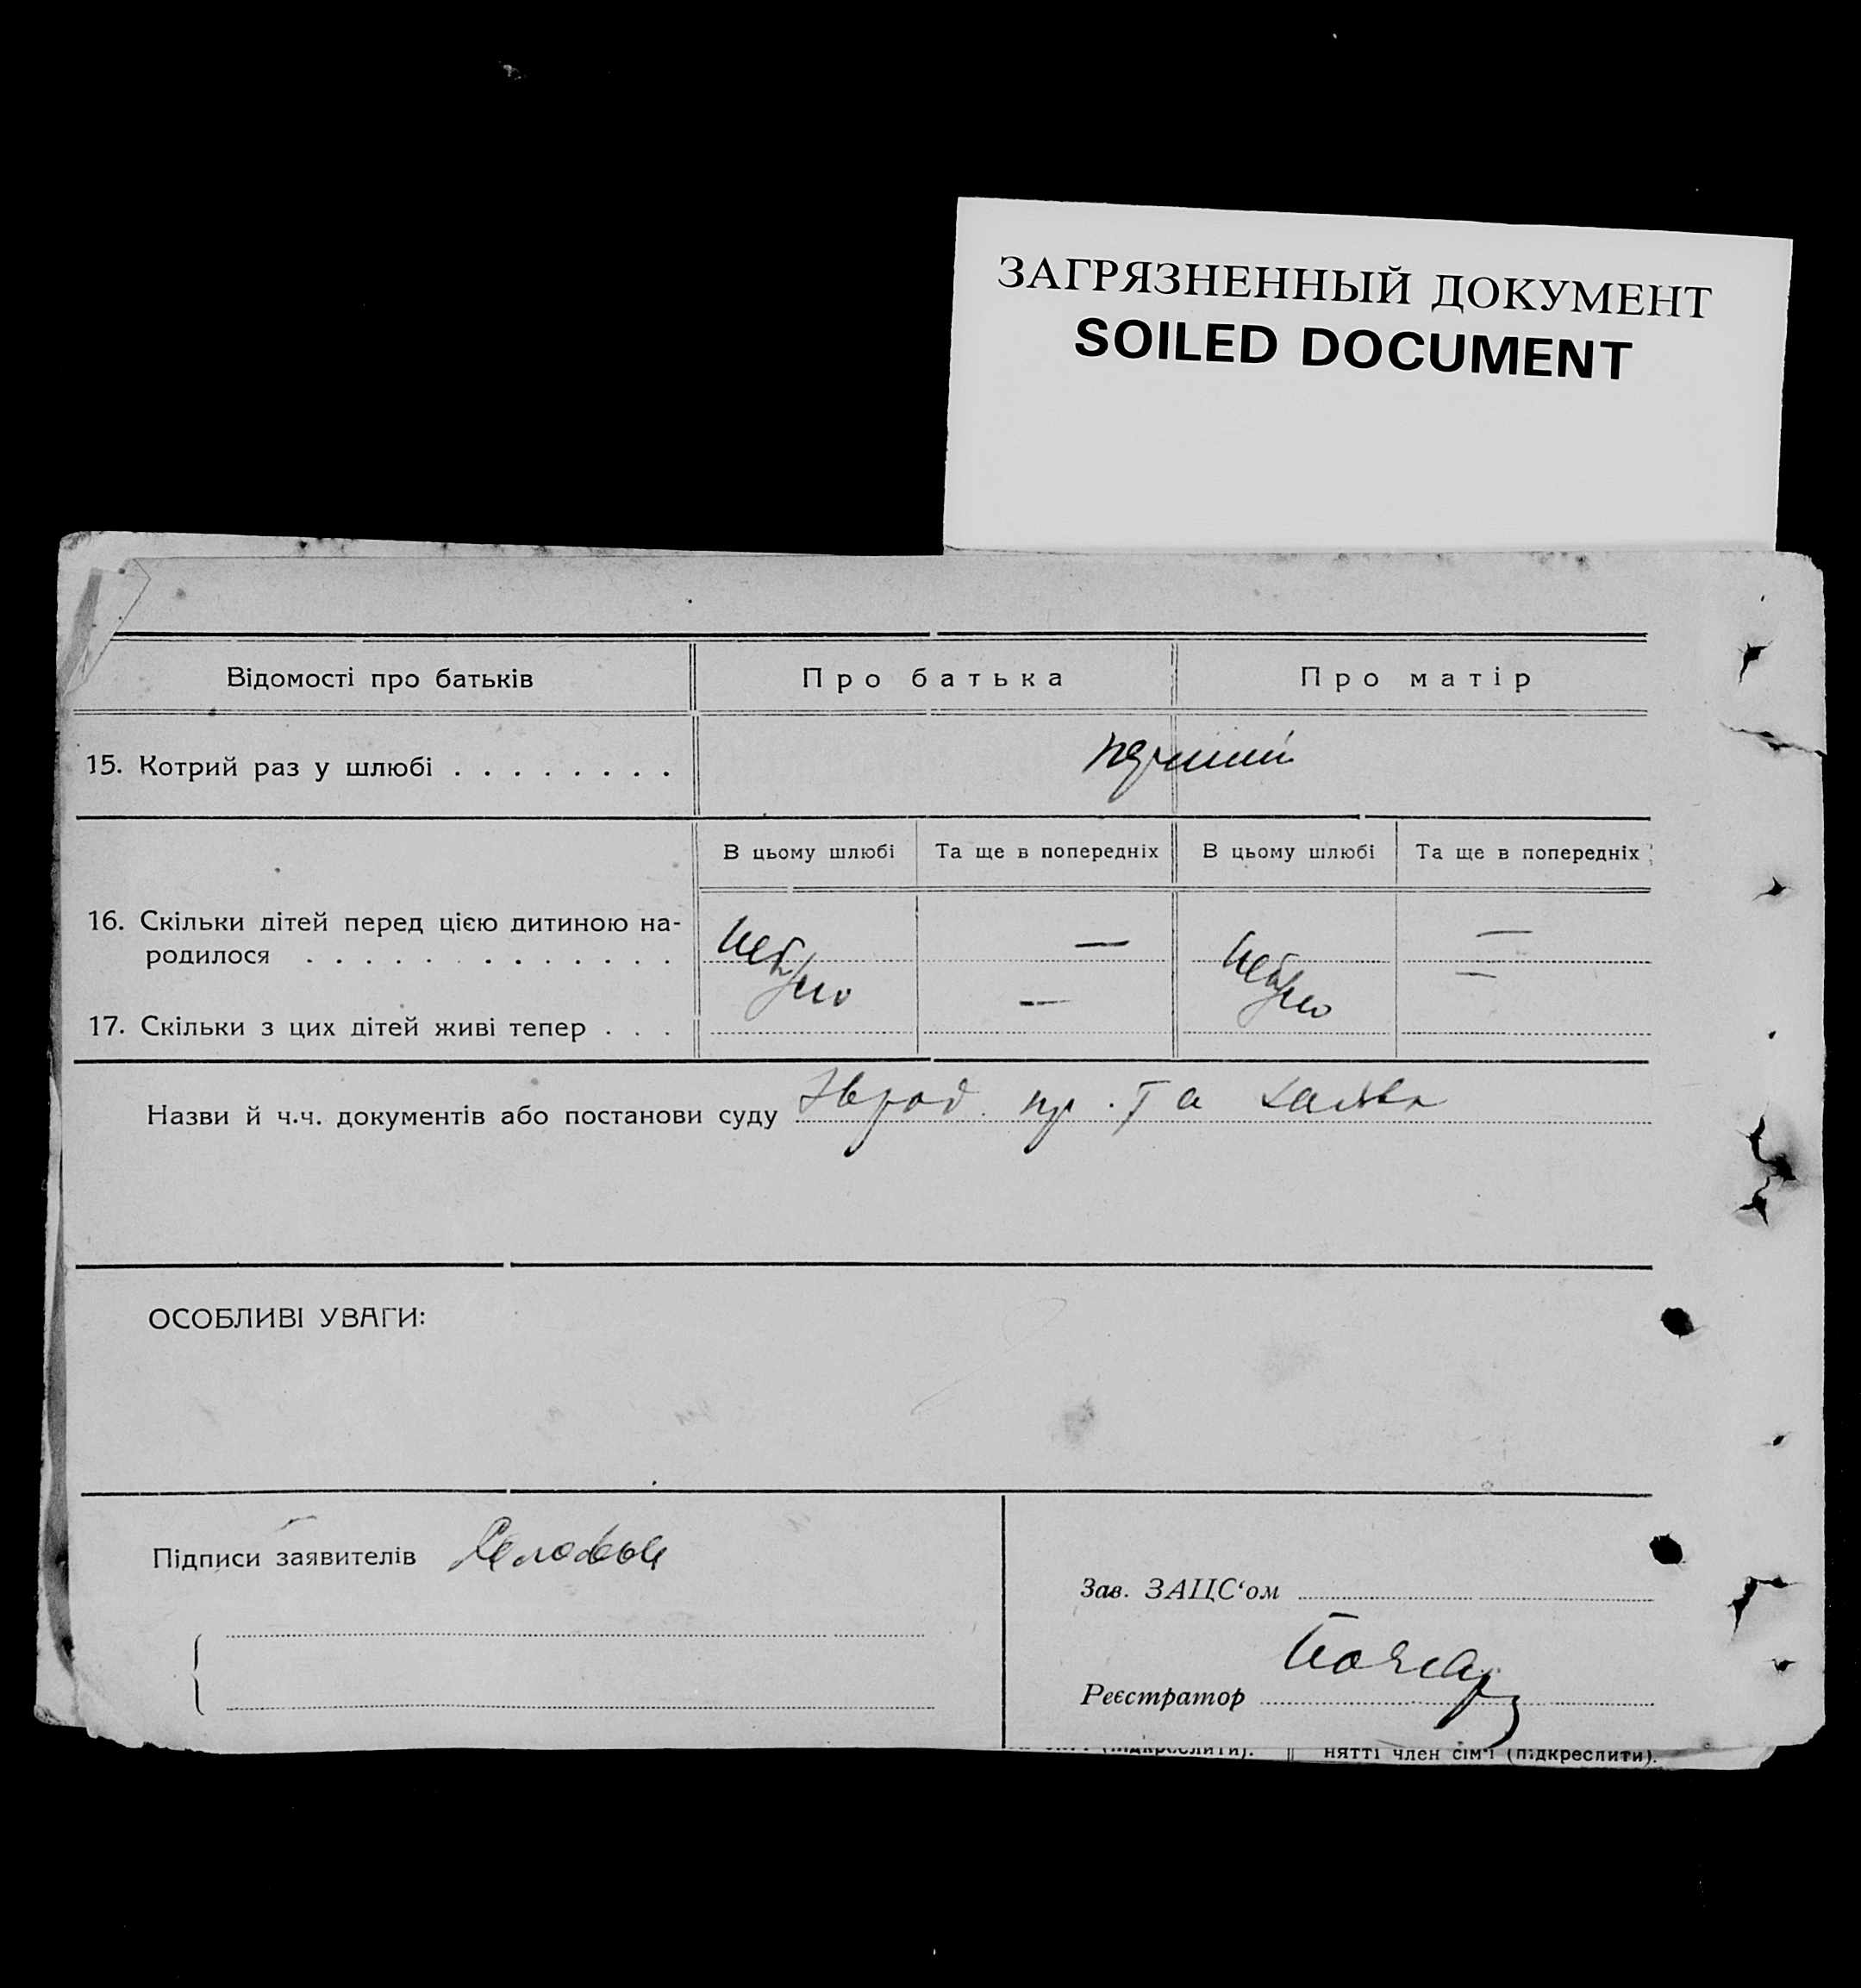 ЗАГРЯЗНЕННЫЙ ДОКУМЕНТ
SOILED DOCUMENT
Відомості про батьків Про батька Про матір
15. Котрий раз у шлюбі . . . . . . . . перший
В цьому шлюбі Та ще в попередніх В цьому шлюбі Та ще в попередніх
16. Скільки дітей перед цією дитиною на-
родилося . . . . . . . . . . . . . не було — не було —
17. Скільки з цих дітей живі тепер . . . — —
Назви й ч.ч. документів або постанови суду та
ОСОБЛИВІ УВАГИ:
Підписи заявителів
Зав. ЗАЦС‘ом
Реєстратор
нятті член сім'ї (підкреслити).